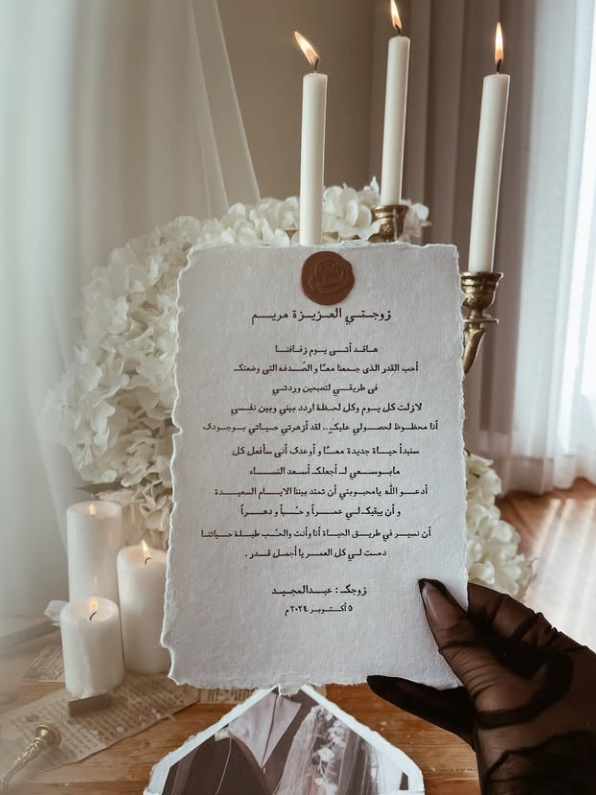 زوجتي العزيزة مريم
هاقد أتى يوم زفافنا
أحب القدر الذى جمعنا معًا و الصُدفه التى وضعتك
فى طريقي لتصبحين وردتي
لازلت كل يوم وكل لحظة اردد بيني وبين نفسي
أنا محظوظ لحصولي عليكِ.. لقد أزهرتي حياتي بوجودك
سنبدأ حياة جديدة معًا و أوعدك أنى سأفعل كل
مابوسعي لـ أجعلك أسعد النساء
أدعو الله يامحبوبتي أن تمتد بيننا الايام السعيدة
و أن يبقيك لي عمراً و حُباً و دهراً
أن نسير في طريق الحياة أنا وأنت والحُب طيلة حياتنا
دمت لي كل العمر يا أجمل قدر .
زوجك : عبدالمجيد
٥ أكتوبر ٢٠٢٤ م